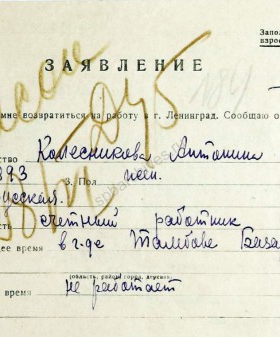 Запо
взрос
ЗАЯВЛЕНИЕ
184
мне возвратиться на работу в г. Ленинград. Сообщаю о
ство Колесникова Антонин
893 3. Пол жен.
русская.
сть счетный работник
щее время в г-де Тамбове База
(область, район, город, деревня)
время не работает